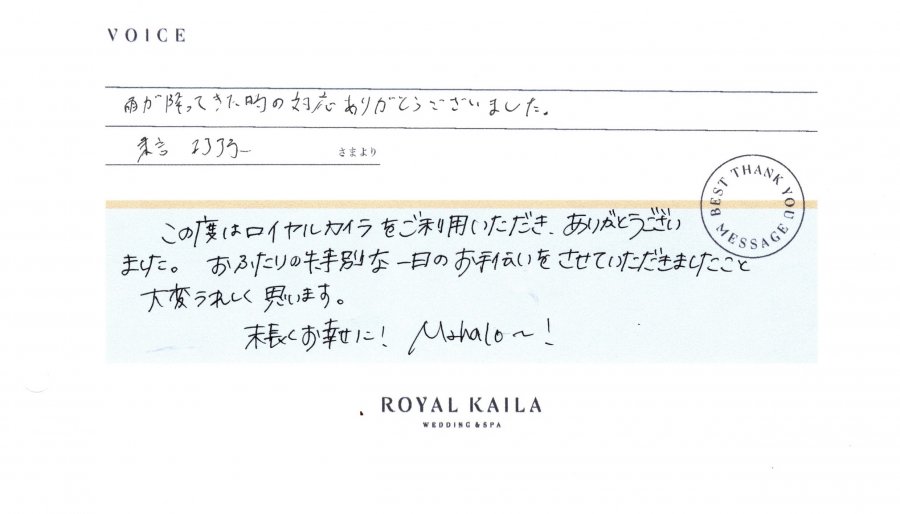 VOICE
雨が降ってきた時の対応ありがとうございました。
さまより
BEST THANK YOU MESSAGE
この度はロイヤルカイラをご利用いただき、ありがとうござい
ました。 おふたりの特別な一日のお手伝いをさせていただきましたこと
大変うれしく思います。
末長くお幸せに! Mahalo~!
ROYAL KAILA
WEDDING & SPA